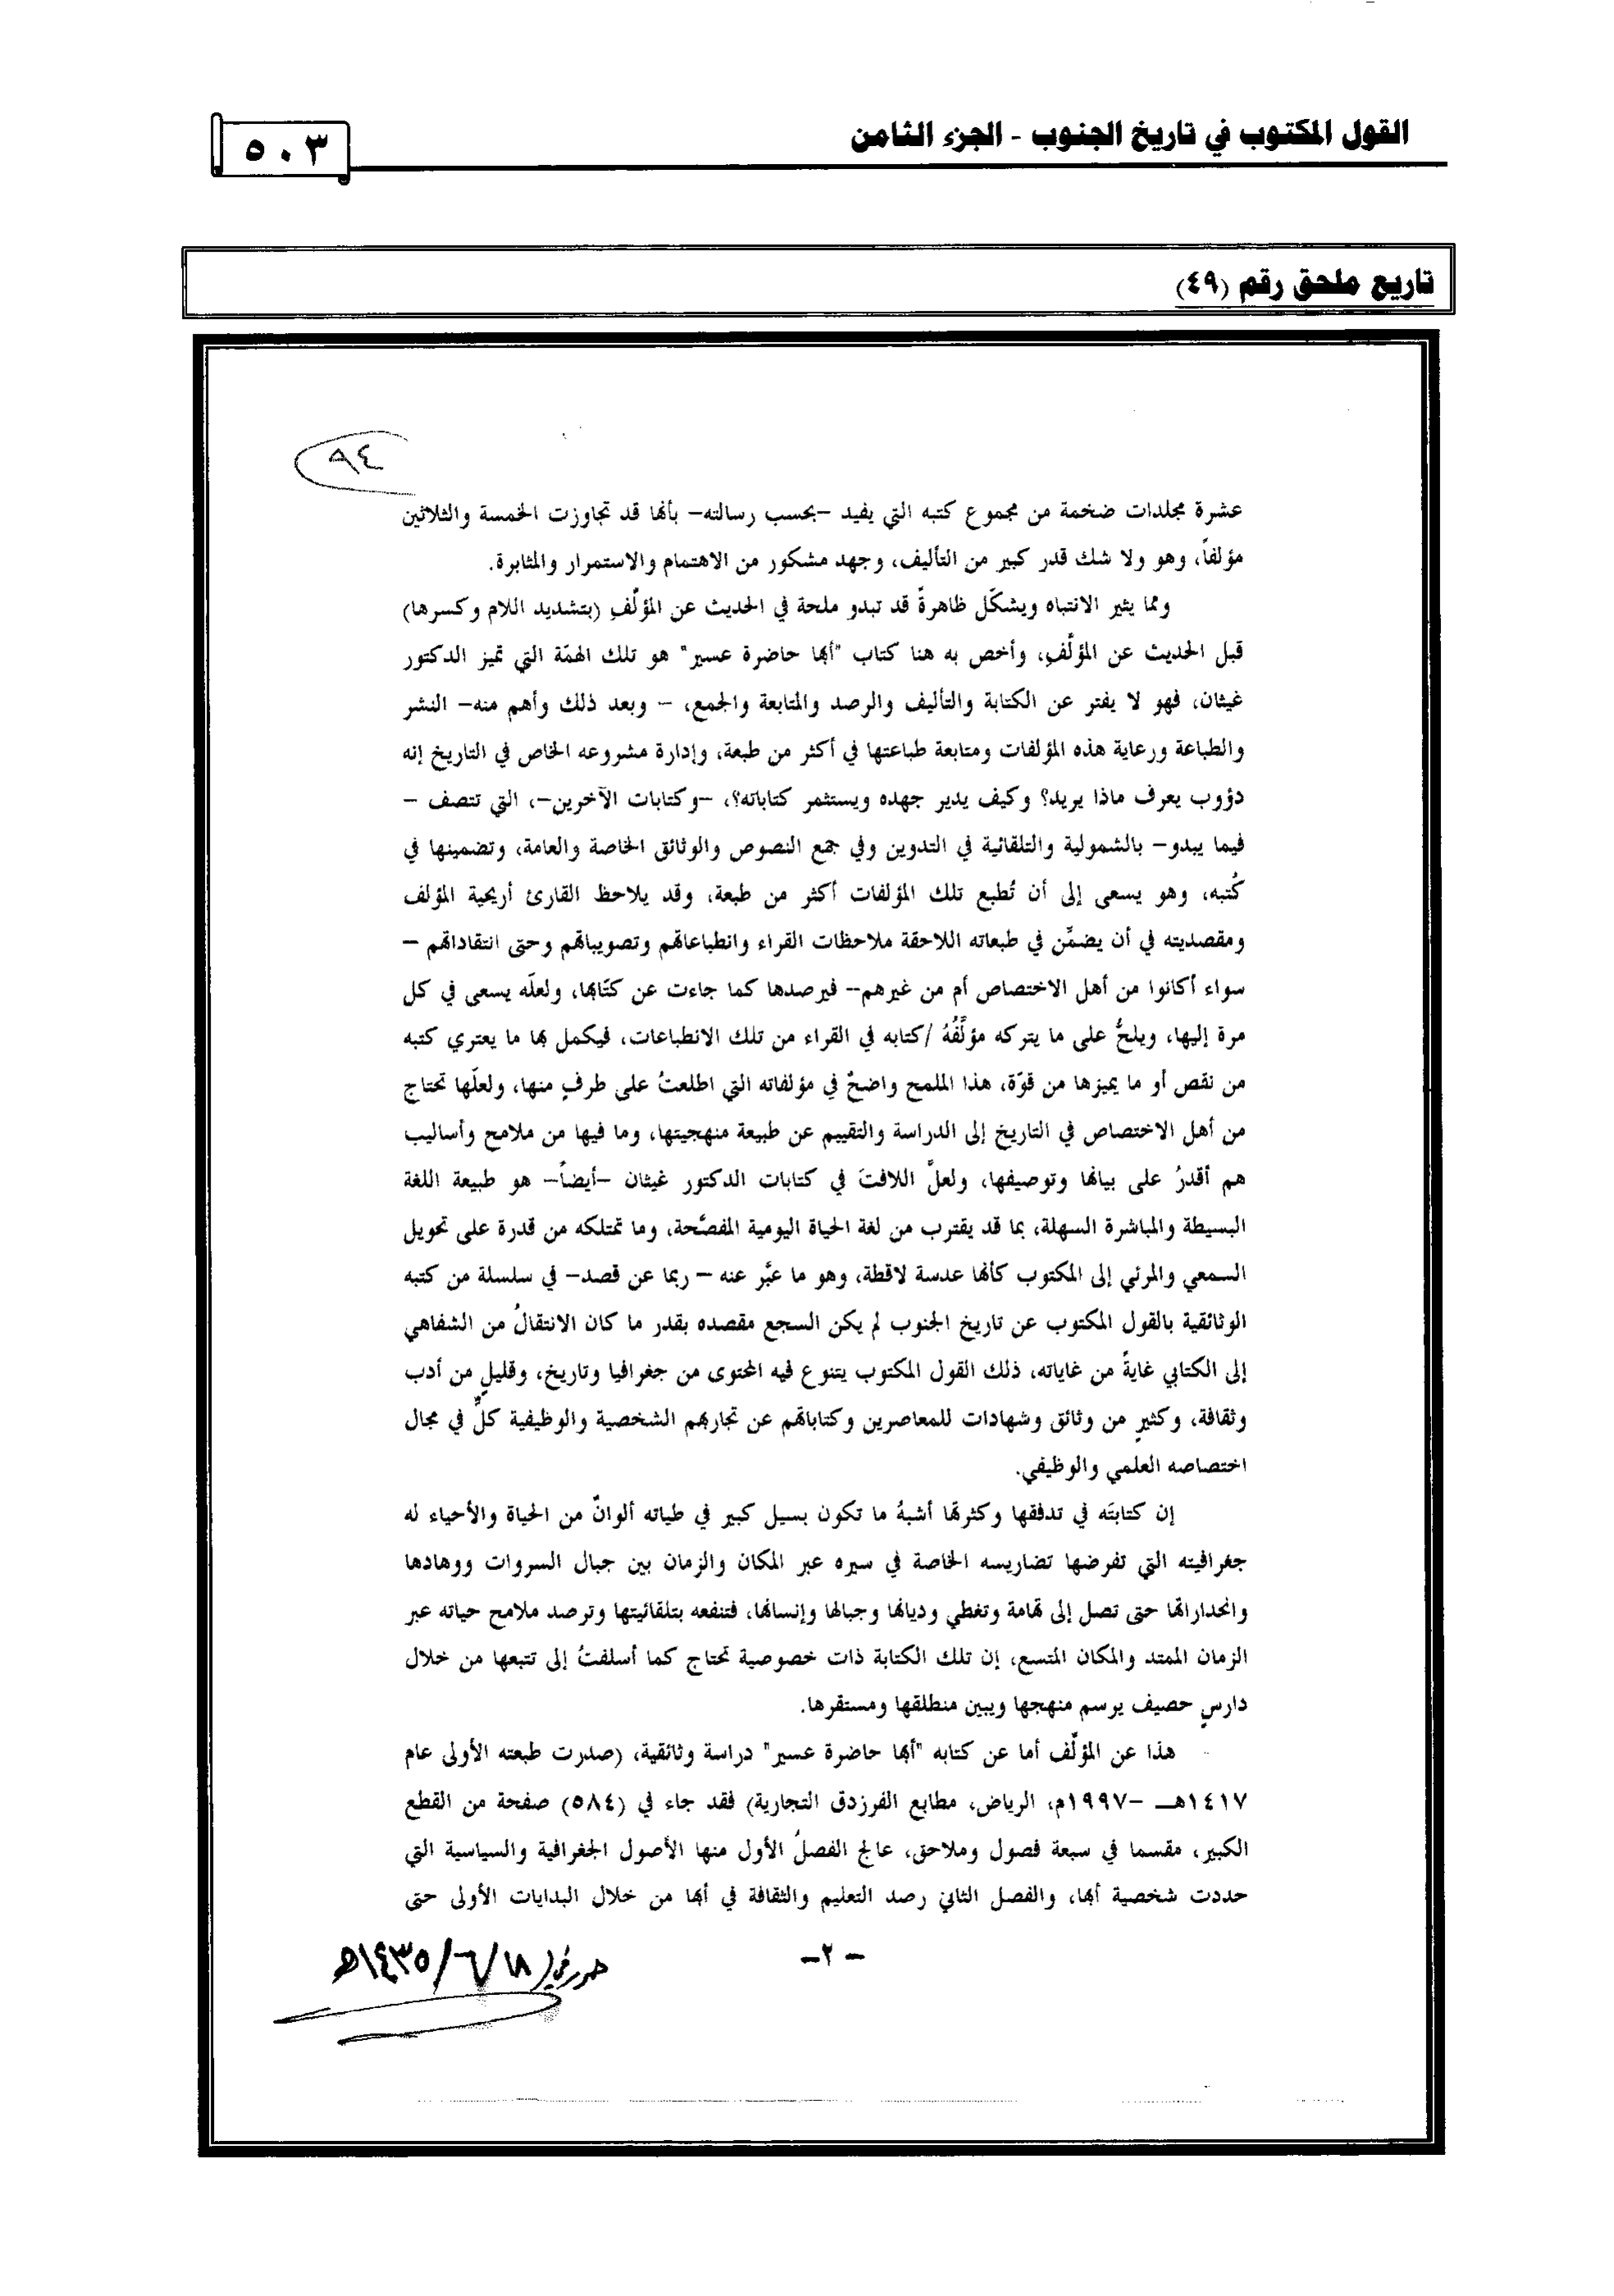 القول المكتوب في تاريخ الجنوب - الجزء الثامن
٥٠٣
تاريع ملحق رقم (٤٩)
٩٤
عشرة مجلدات ضخمة من مجموع كتبه التي يفيد –بحسب رسالته– بأنها قد تجاوزت الخمسة والثلاثين
مؤلفاً، وهو ولا شك قدر كبير من التأليف، وجهد مشكور من الاهتمام والاستمرار والمثابرة.
ومما يثير الانتباه ويشكّل ظاهرةً قد تبدو ملحة في الحديث عن المؤلِّفِ (بتشديد اللام وكسرها)
قبل الحديث عن المؤلَّفِ، وأخص به هنا كتاب "أبها حاضرة عسير" هو تلك الهمّة التي تميز الدكتور
غيثان، فهو لا يفتر عن الكتابة والتأليف والرصد والمتابعة والجمع، – وبعد ذلك وأهم منه– النشر
والطباعة ورعاية هذه المؤلفات ومتابعة طباعتها في أكثر من طبعة، وإدارة مشروعه الخاص في التاريخ إنه
دؤوب يعرف ماذا يريد؟ وكيف يدير جهده ويستثمر كتاباته؟، –وكتابات الآخرين–، التي تتصف –
فيما يبدو– بالشمولية والتلقائية في التدوين وفي جمع النصوص والوثائق الخاصة والعامة، وتضمينها في
كُتبه، وهو يسعى إلى أن تُطبع تلك المؤلفات أكثر من طبعة، وقد يلاحظ القارئ أريحية المؤلف
ومقصديته في أن يضمِّن في طبعاته اللاحقة ملاحظات القراء وانطباعاتهم وتصويباتهم وحتى انتقاداتهم –
سواء أكانوا من أهل الاختصاص أم من غيرهم-- فيرصدها كما جاءت عن كتّابها، ولعلّه يسعى في كل
مرة إليها، ويلحُّ على ما يتركه مؤلَّفُهُ /كتابه في القراء من تلك الانطباعات، فيكمل بها ما يعتري كتبه
من نقص أو ما يميزها من قوّة، هذا الملمح واضحٌ في مؤلفاته التي اطلعتُ على طرفٍ منها، ولعلّها تحتاج
من أهل الاختصاص في التاريخ إلى الدراسة والتقييم عن طبيعة منهجيتها، وما فيها من ملامح وأساليب
هم أقدرُ على بيانها وتوصيفها، ولعلَّ اللافتَ في كتابات الدكتور غيثان –أيضاً– هو طبيعة اللغة
البسيطة والمباشرة السهلة، بما قد يقترب من لغة الحياة اليومية المفصَّحة، وما تمتلكه من قدرة على تحويل
السمعي والمرئي إلى المكتوب كأنها عدسة لاقطة، وهو ما عبَّر عنه – ربما عن قصد– في سلسلة من كتبه
الوثائقية بالقول المكتوب عن تاريخ الجنوب لم يكن السجع مقصده بقدر ما كان الانتقالُ من الشفاهي
إلى الكتابي غايةً من غاياته، ذلك القول المكتوب يتنوع فيه المحتوى من جغرافيا وتاريخ، وقليلٍ من أدب
وثقافة، وكثيرٍ من وثائق وشهادات للمعاصرين وكتاباتهم عن تجاربهم الشخصية والوظيفية كلٍّ في مجال
اختصاصه العلمي والوظيفي.
إن كتابتَه في تدفقها وكثرتها أشبهُ ما تكون بسيل كبير في طياته ألوانٌ من الحياة والأحياء له
جغرافيته التي تفرضها تضاريسه الخاصة في سيره عبر المكان والزمان بين جبال السروات ووهادها
وانحداراتها حتى تصل إلى تهامة وتغطي وديانها وجبالها وإنسانها، فتنفعه بتلقائيتها وترصد ملامح حياته عبر
الزمان الممتد والمكان المتسع، إن تلك الكتابة ذات خصوصية تحتاج كما أسلفتُ إلى تتبعها من خلال
دارسٍ حصيف يرسم منهجها ويبين منطلقها ومستقرها.
هذا عن المؤلِّف أما عن كتابه "أبها حاضرة عسير" دراسة وثائقية، (صدرت طبعته الأولى عام
١٤١٧هـ -١٩٩٧م، الرياض، مطابع الفرزدق التجارية) فقد جاء في (٥٨٤) صفحة من القطع
الكبير، مقسما في سبعة فصول وملاحق، عالج الفصلُ الأول منها الأصول الجغرافية والسياسية التي
حددت شخصية أبها، والفصل الثاني رصد التعليم والثقافة في أبها من خلال البدايات الأولى حتى
– ٢–
١٨/٦/١٤٣٥هـ